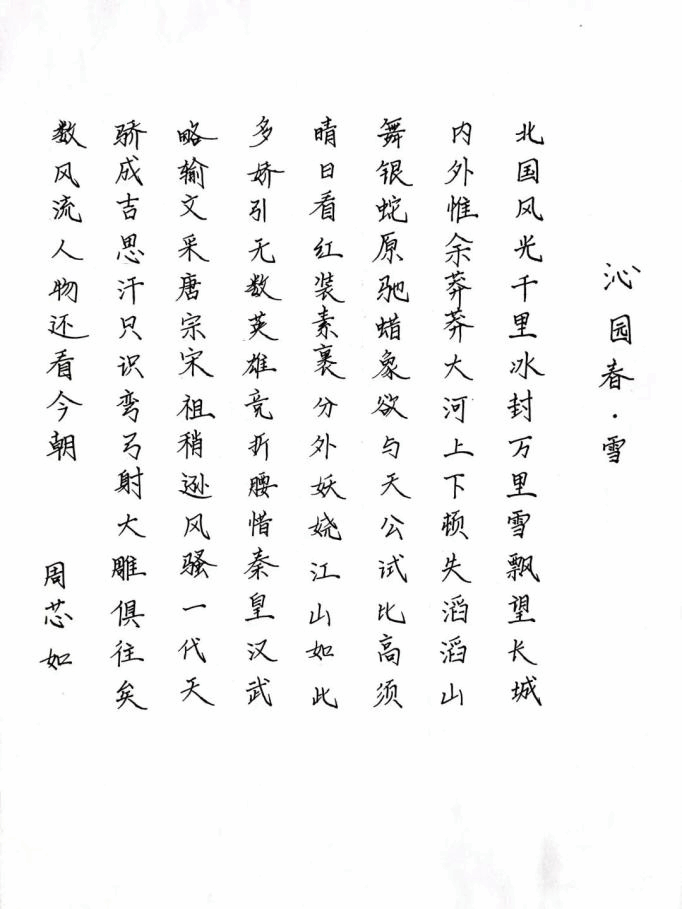 沁园春·雪
北国风光千里冰封万里雪飘望长城
内外惟余莽莽大河上下顿失滔滔山
舞银蛇原驰蜡象欲与天公试比高须
晴日看红装素裹分外妖娆江山如此
多娇引无数英雄竞折腰惜秦皇汉武
略输文采唐宗宋祖稍逊风骚一代天
骄成吉思汗只识弯弓射大雕俱往矣
数风流人物还看今朝
周芯如